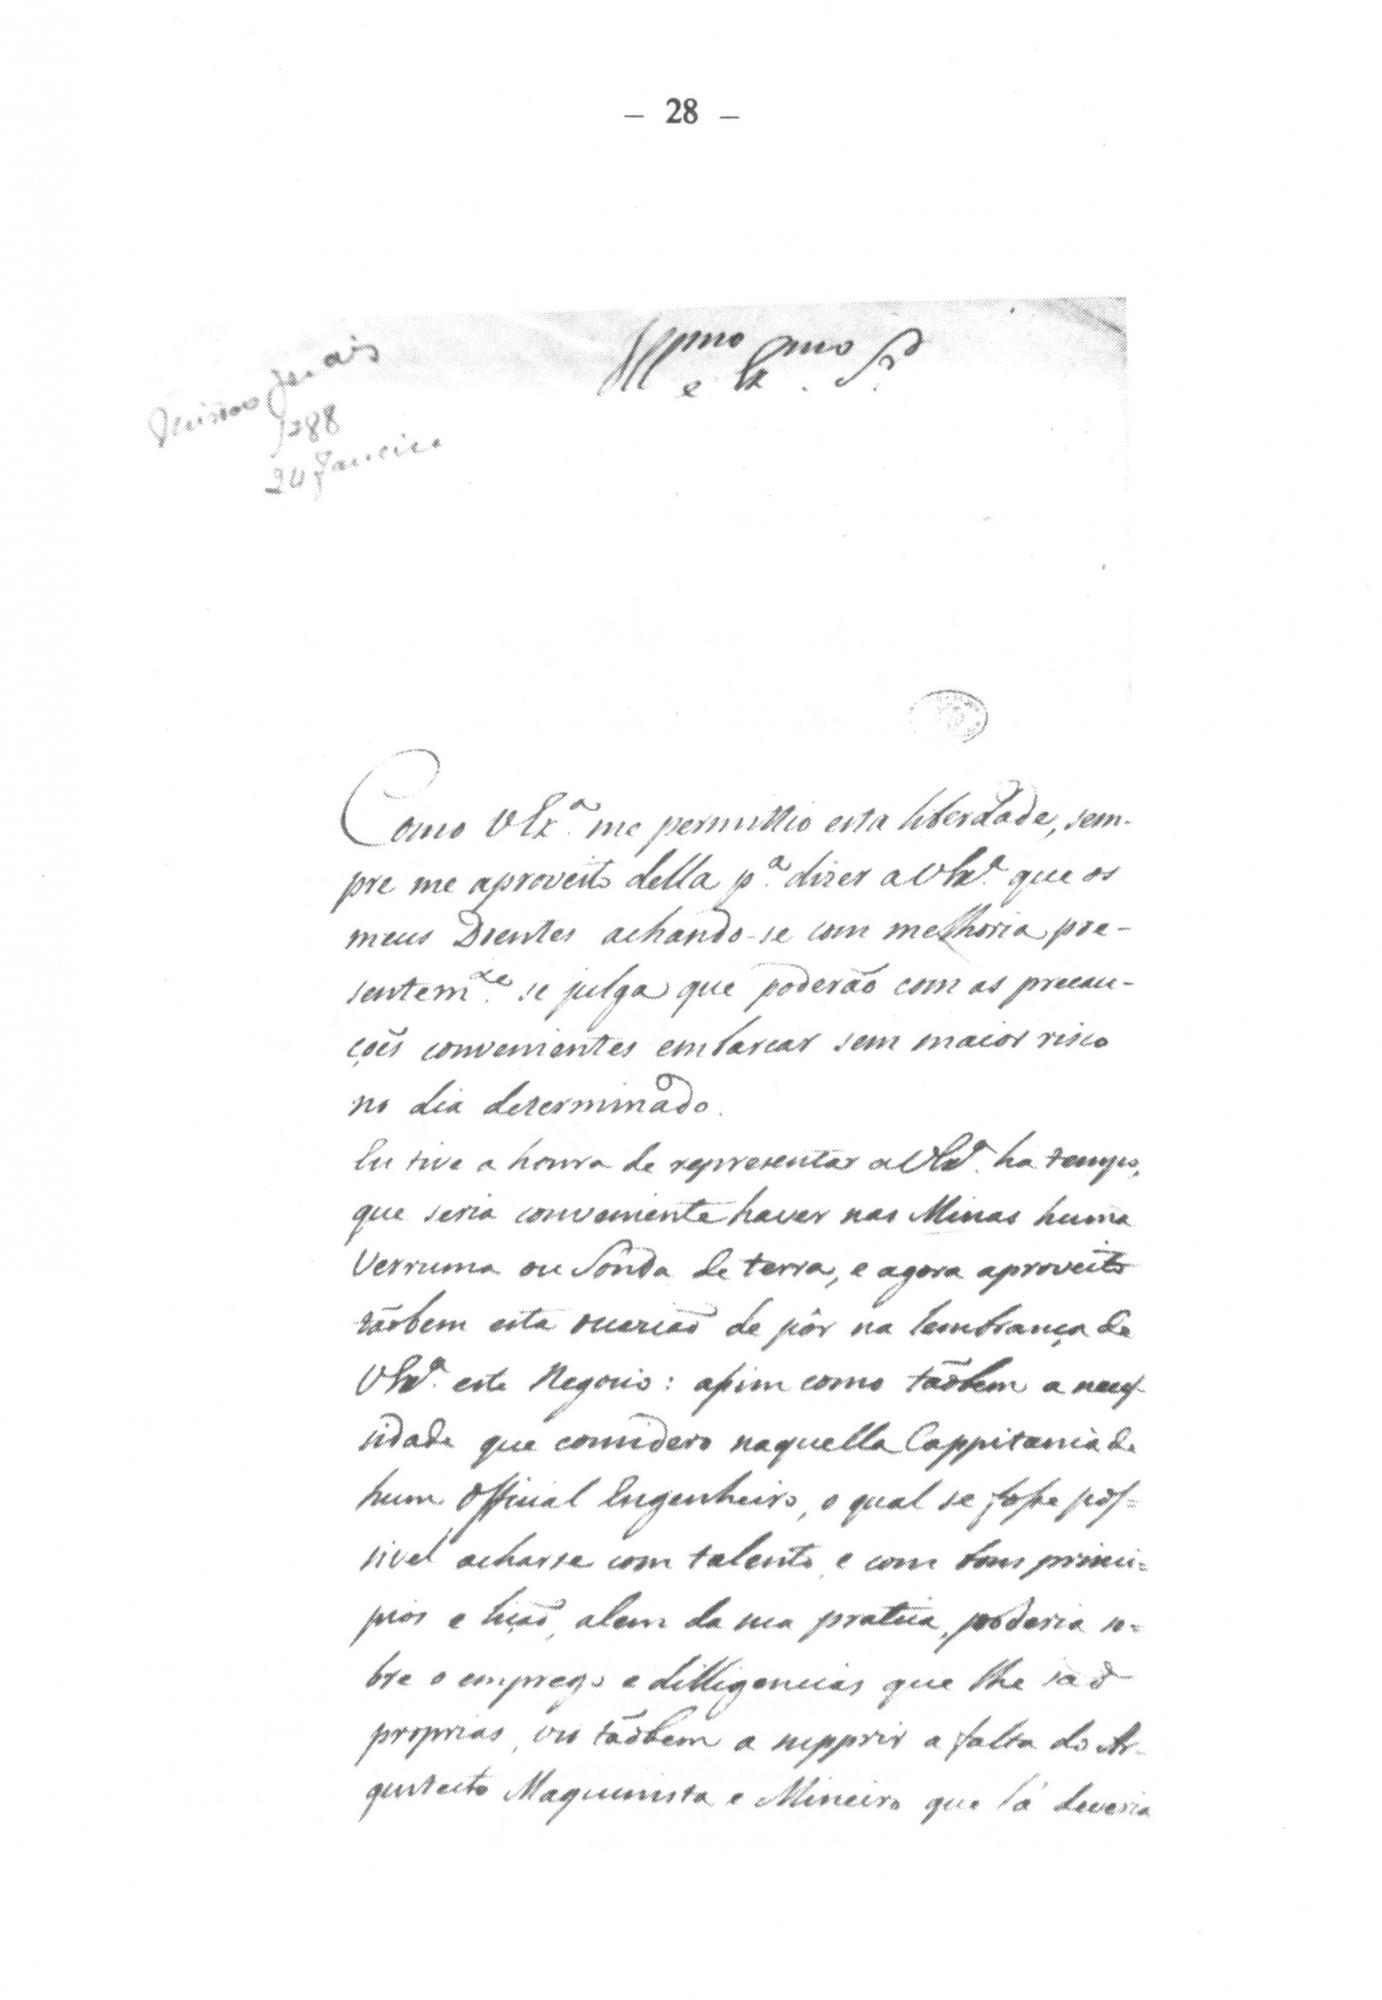 — 28 —
Illmo e Exmo Sr.
Minas Geraes
1788
24 Janeiro
Como V Exª. me permittio esta liberdade, sem-
pre me aproveito della pª. dizer a V Exª. que os
meus Doentes achando-se com melhoria pre-
sentemte. se julga que poderão com as precau-
ções convenientes embarcar sem maior risco
no dia determinado.
Eu tive a honra de representar a V Exª. ha tempo,
que seria conveniente haver nas Minas huma
Verruma ou Sonda de terra, e agora aproveito
tãobem esta occazião de pôr na lembrança de
V Exª. este Negocio: assim como tãobem a neces-
sidade que considero naquella Cappitania de
hum Official Engenheiro, o qual se fosse pos=
sivel acharse com talento, e com bons princi=
pios e lição, alem da sua pratica, poderia so=
bre o emprego e dilligencias que lhe são
proprias, vir tãobem a supprir a falta do Ar-
quitecto Maquinista e Mineiro que lá deveria